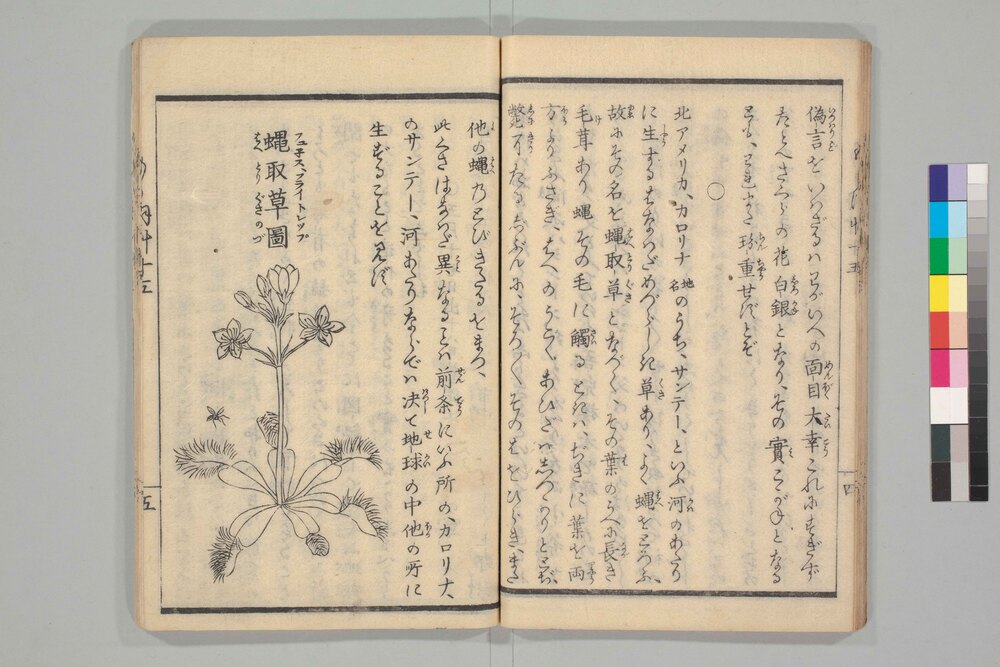 偽言をいハざるハわがいへの面目大幸これにすぎず
たとへきつらの花白銀となり、その實こがねとなる
とも、それまた珍重せずとぞ
○
北アメリカ、カロリナ地名のうち、サンテー、といふ河のあたり
に生ずるはなはだめづらしき草あり、よく蠅をとらふ、
故にその名を蠅取草となづく、その葉のうへに長き
毛茸あり蠅その毛に觸るときハぢきに葉を両
方よりふさぎ、はへのうごくあひだハしつかりととぢ、
斃てたるじぶんに、そろそろ、そのはをひらき、また
他の蠅乃とびきたるをまつ、
此くさはなはだ異なることハ前条にいふ所の、カロリナ、
のサンテー、河あたりならでハ决て地球の中他の所に
生ずることを見ず
フェニス、フライトレップ
蠅取草圖
はへとりぐさのづ
五